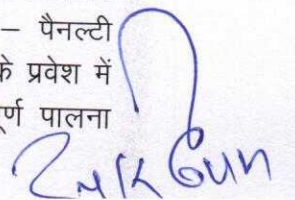 – पैनल्टी
के प्रवेश में
र्ण पालना